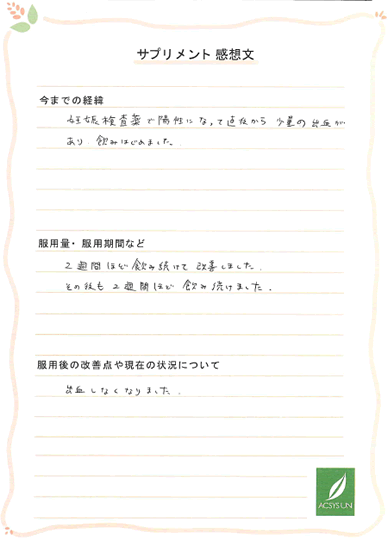 サプリメント 感想文
今までの経緯
妊娠検査薬で陽性になって直後から 少量の出血が
あり、飲みはじめました。
服用量・服用期間など
2週間ほど飲み続けて改善しました。
その後も2週間ほど飲み続けました。
服用後の改善点や現在の状況について
出血しなくなりました。
ACSYSUN